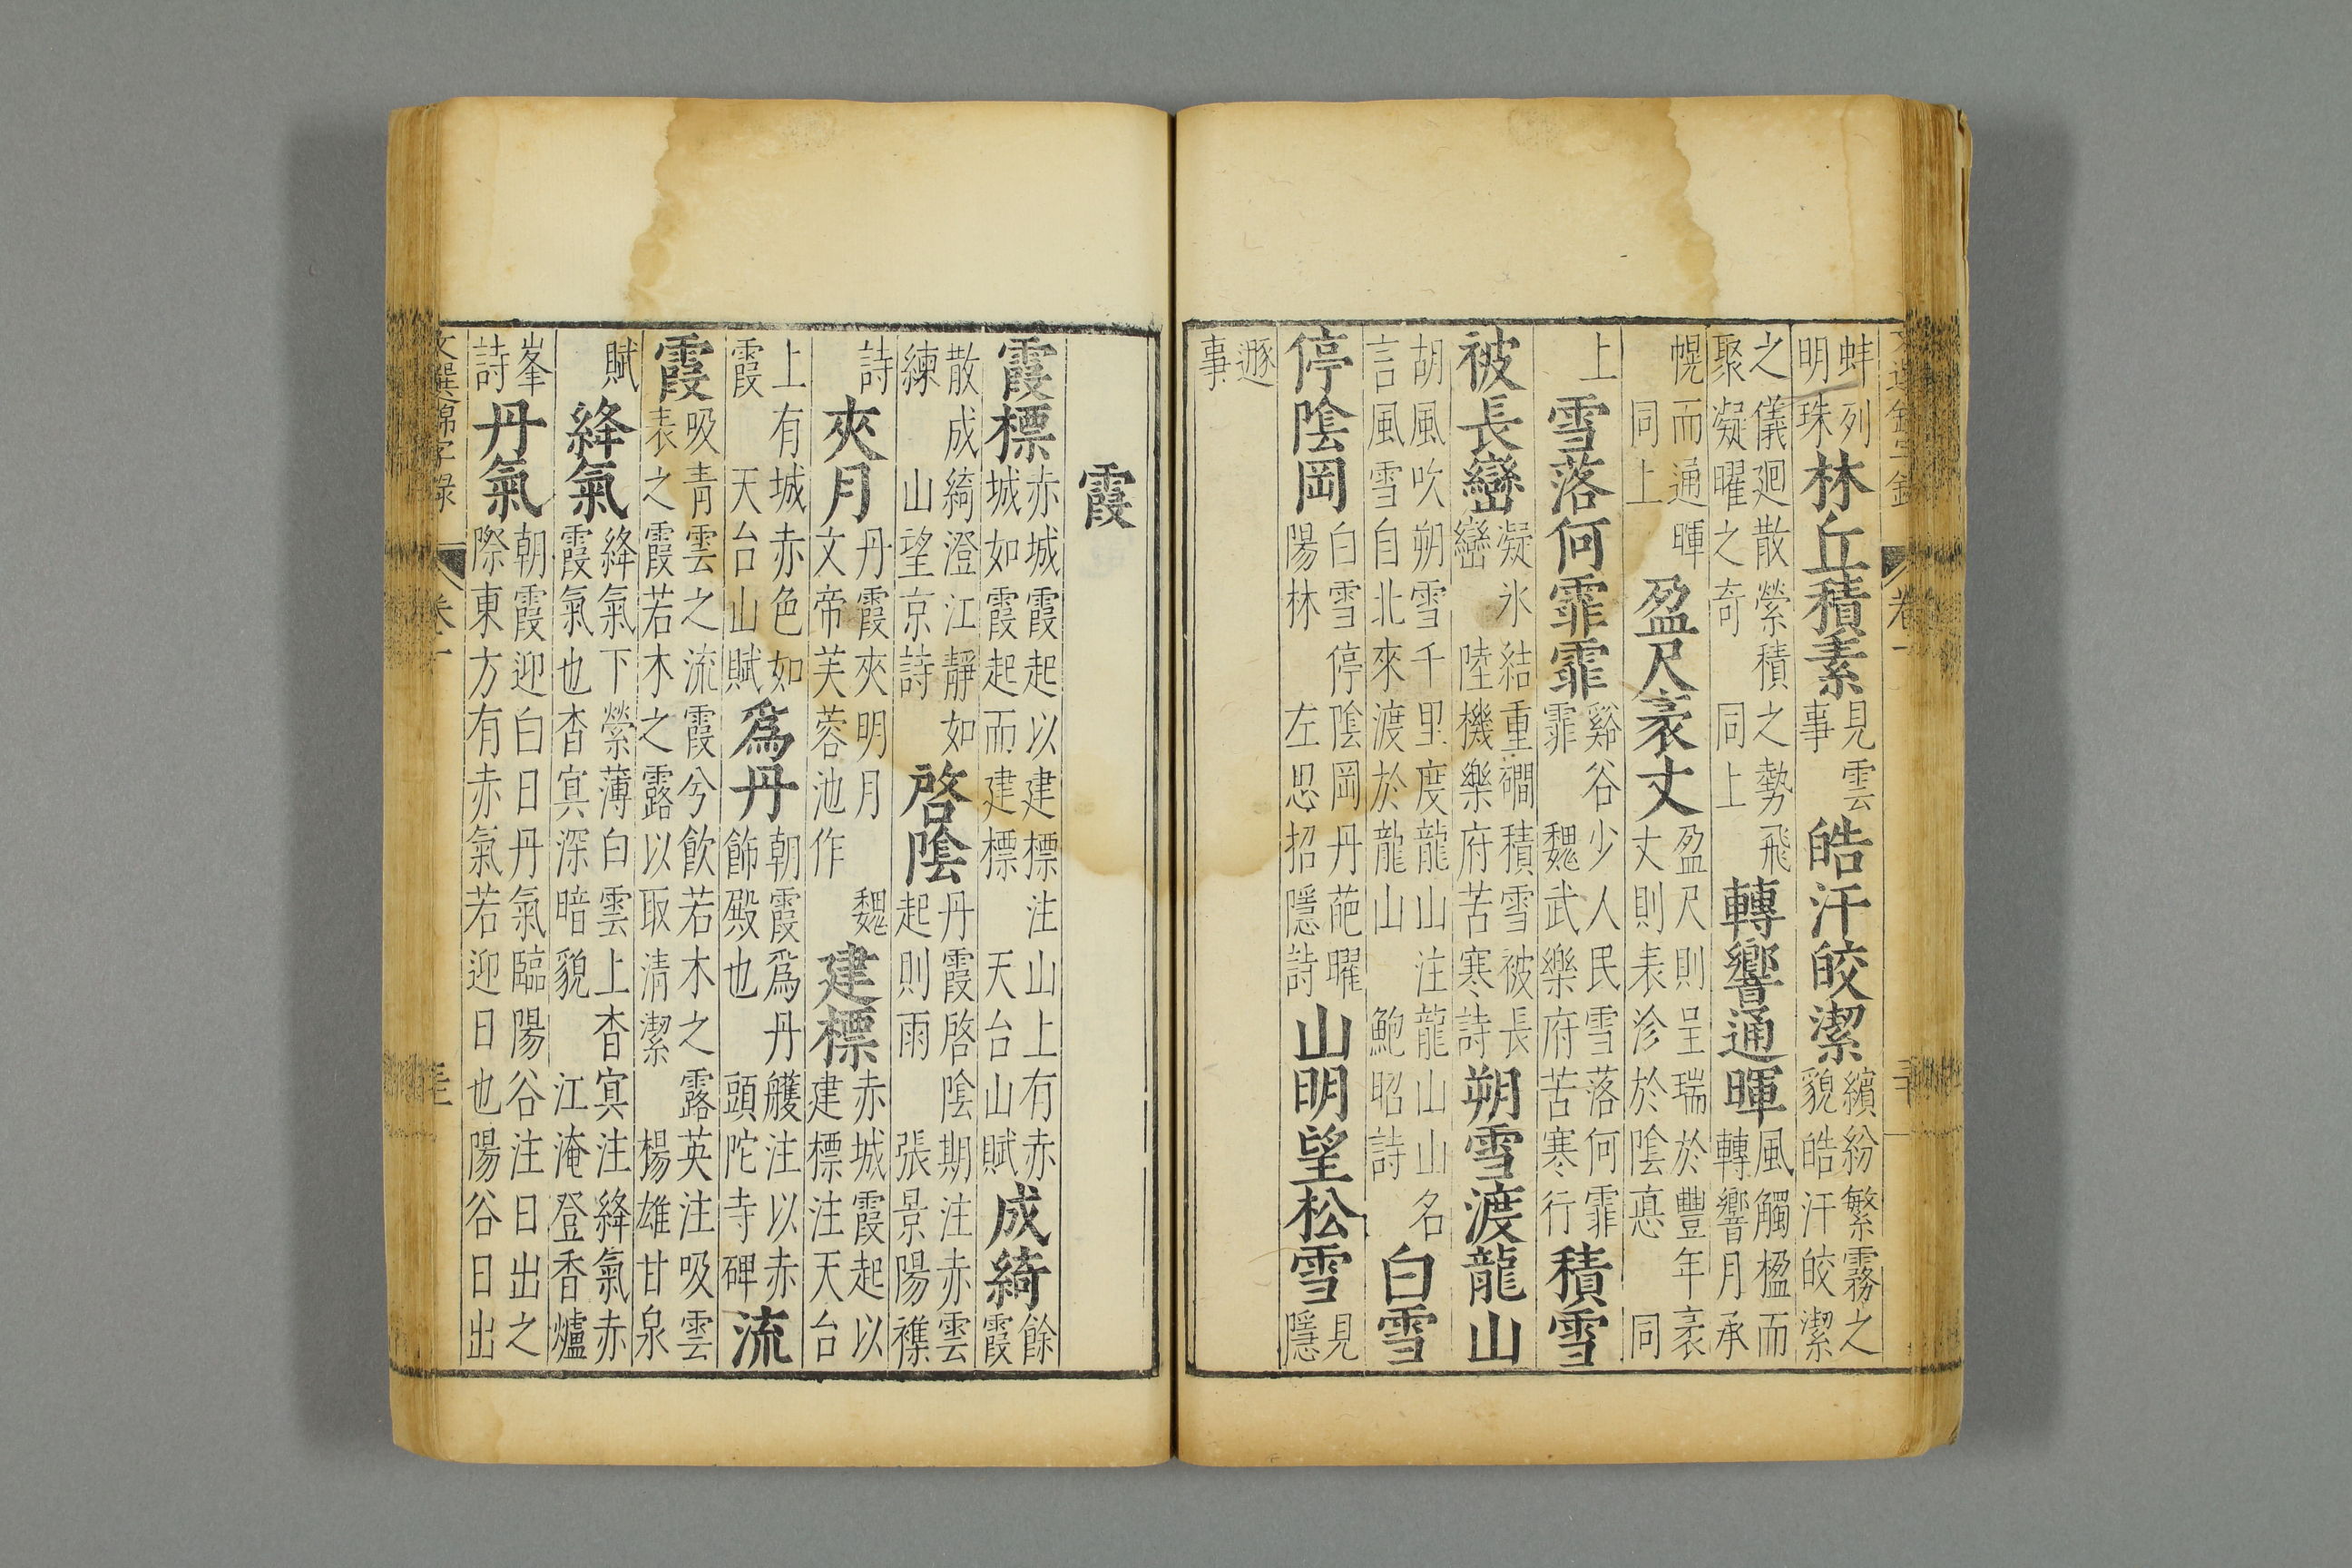 卷一
蚌列明珠林丘積素見雲事皓汗皎潔繽紛繁霧之貌皓汗皎潔
之儀廻散縈積之勢飛聚凝曜之奇 同上轉響通暉風觸楹而轉響月承
幌而通暉同上盈尺袤丈盈尺則呈瑞於豐年袤丈則表沴於陰悳 同
上雪落何霏霏谿谷少人民雪落何霏霏 魏武樂府苦寒行積雪
被長巒凝氷結重磵積雪被長巒 陸機樂府苦寒詩朔雪渡龍山
胡風吹朔雪千里度龍山注龍山山名言風雪自北來渡於龍山 鮑昭詩白雪
停陰岡白雪停陰岡丹葩曜陽林 左思招隱詩山明望松雪見隱
遯事
霞
霞標赤城霞起以建標注山上有赤城如霞起而建標 天台山賦成綺餘霞
散成綺澄江靜如練 山望京詩啓陰丹霞啓陰期注赤雲起則雨 張景陽襍
詩夾月丹霞夾明月 魏文帝芙蓉池作建標赤城霞起以建標注天台
上有城赤色如霞 天台山賦爲丹朝霞爲丹雘注以赤飾殿也 頭陀寺碑流
霞吸青雲之流霞兮飮若木之露英注吸雲表之霞若木之露以取清潔 楊雄甘泉
賦絳氣絳氣下縈薄白雲上杳冥注絳氣赤霞氣也杳冥深暗貌 江淹登香爐
峯詩丹氣朝霞迎白日丹氣臨陽谷注日出之際東方有赤氣若迎日也陽谷日出
文選錦字錄 卷一